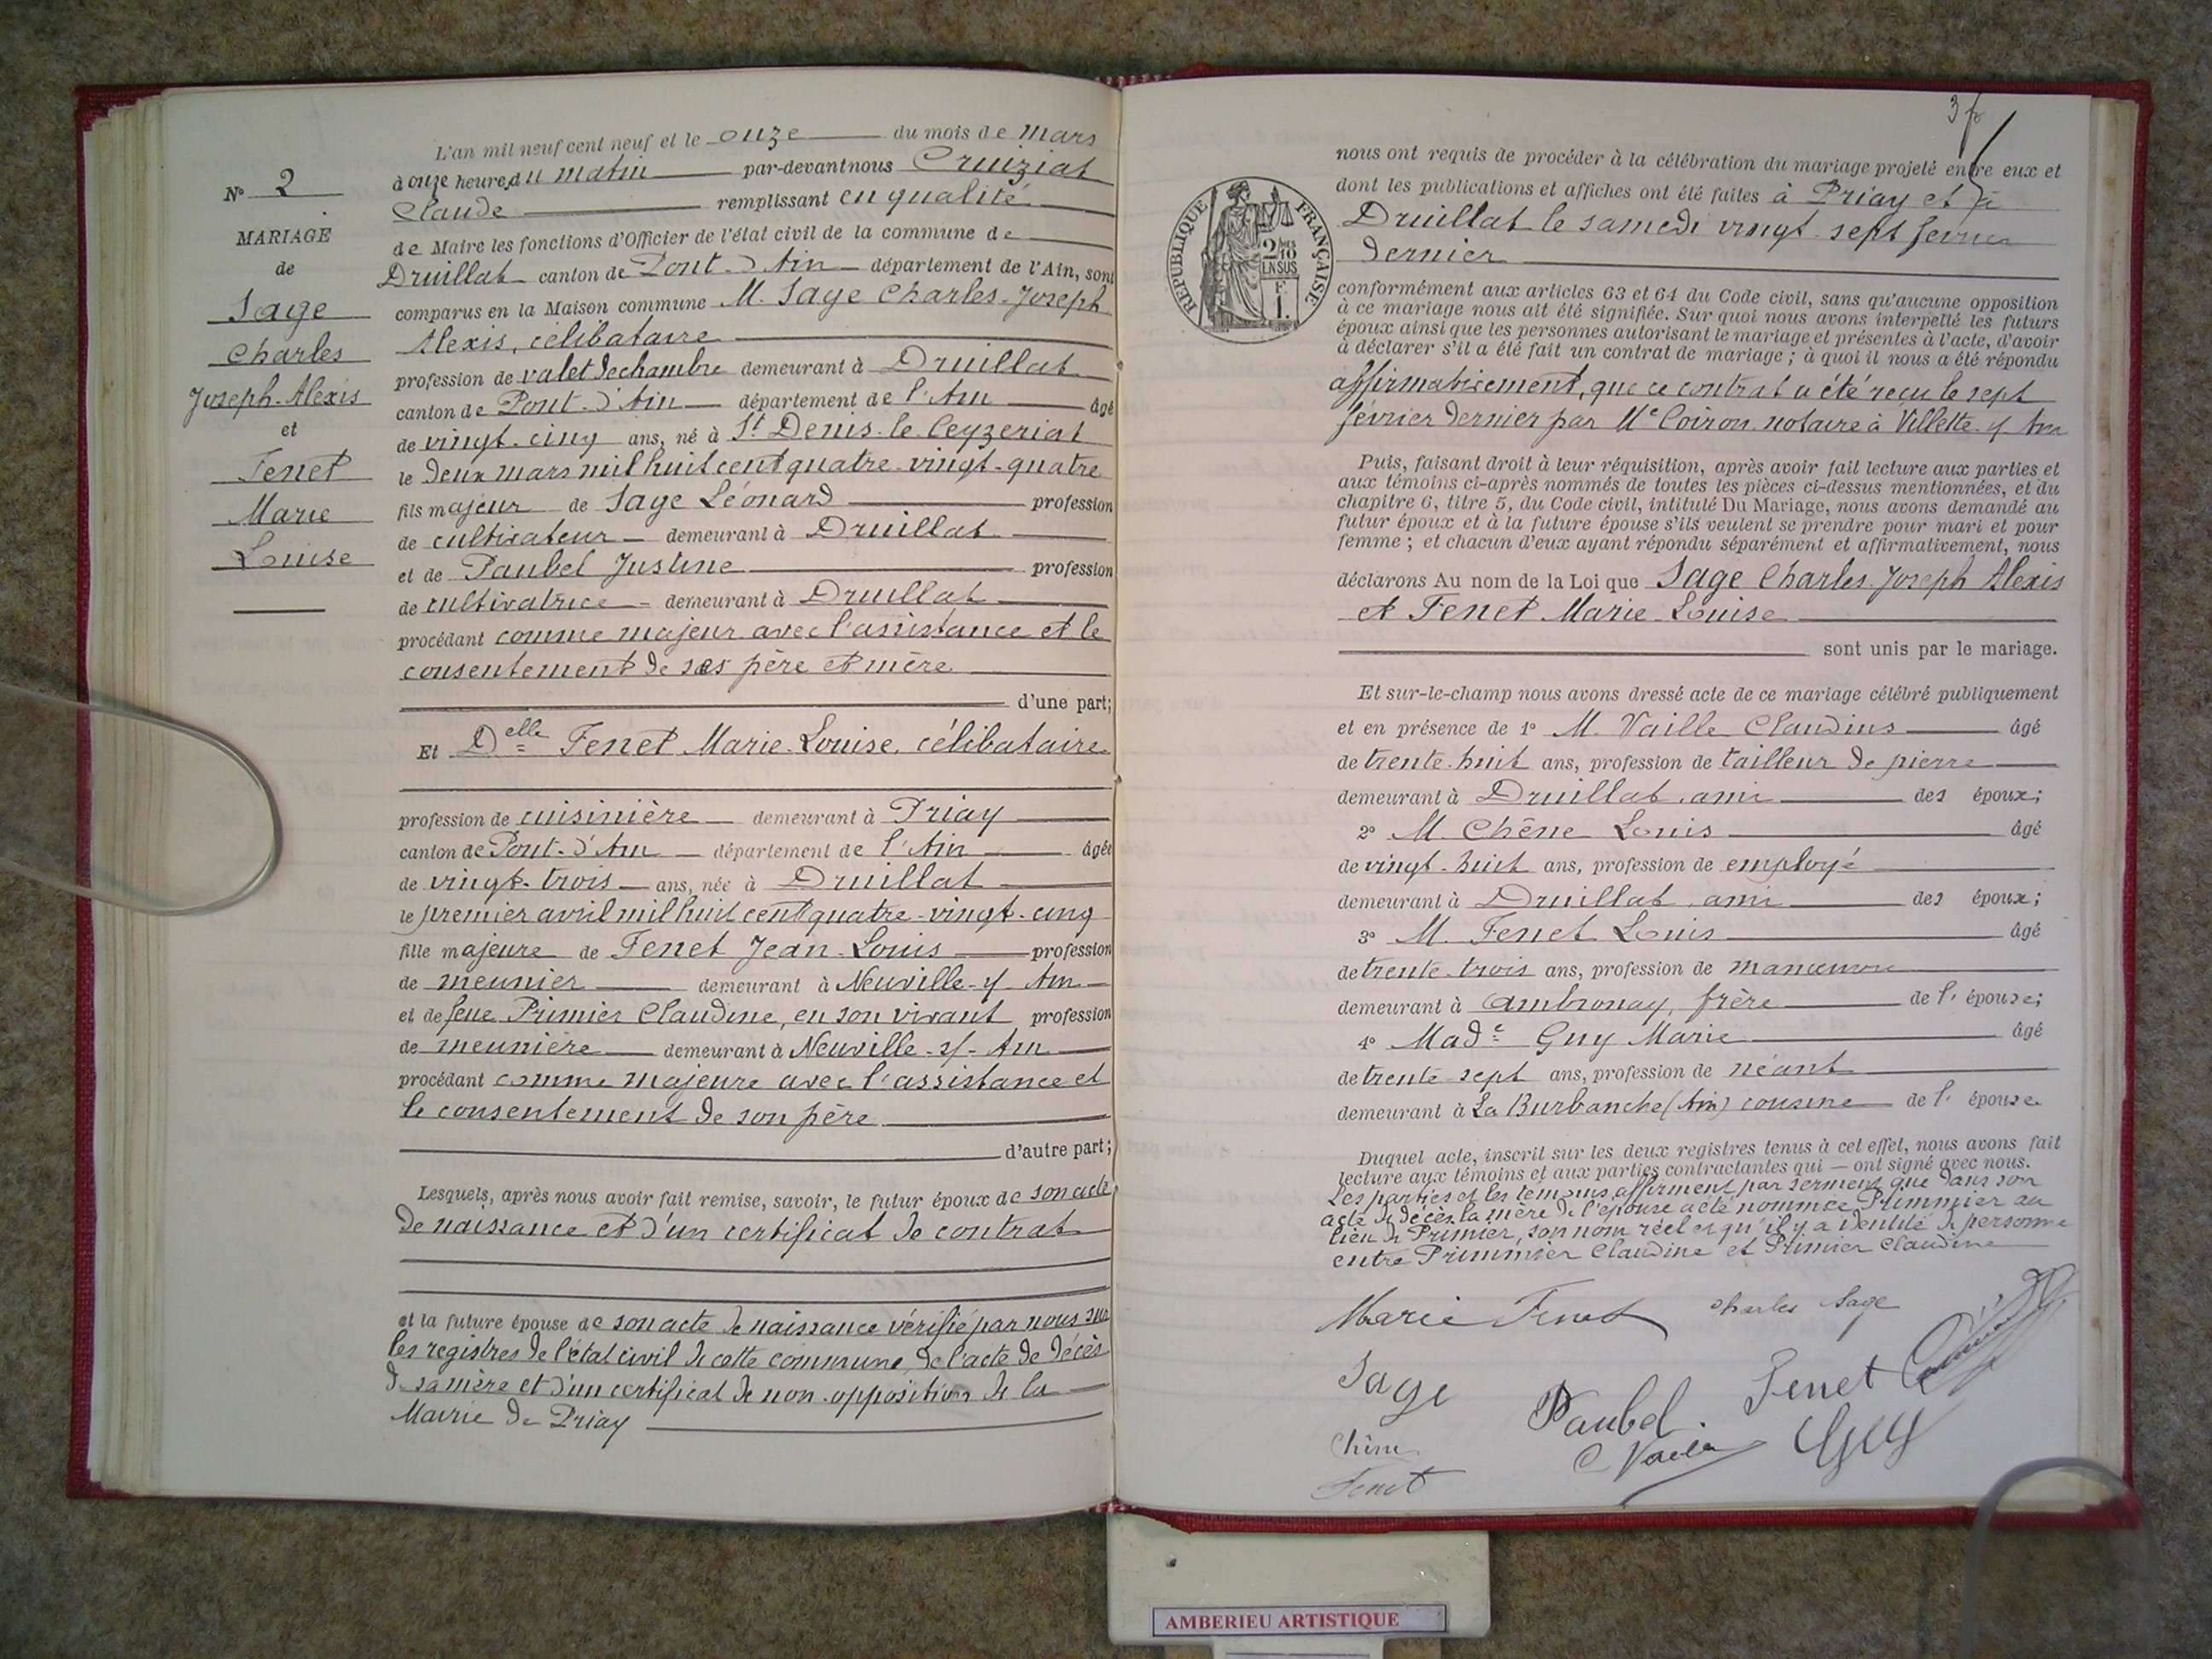 N° 2
MARIAGE
de
Sage
Charles
Joseph-Alexis
et
Fenet
Marie
Louise
L'an mil neuf cent neuf et le onze du mois de mars
à onze heures du matin par-devant nous Cruiziat
Claude remplissant en qualité
de Maire les fonctions d'Officier de l'état civil de la commune de
Druillat canton de Pont-d'Ain département de l'Ain, sont
comparus en la Maison commune M. Sage Charles-Joseph
Alexis, célibataire
profession de valet de chambre demeurant à Druillat
canton de Pont-d'Ain département de l'Ain âgé
de vingt-cinq ans, né à St Denis-le-Ceyzeriat
le deux mars mil huit cent quatre-vingt-quatre
fils majeur de Sage Léonard profession
de cultivateur demeurant à Druillat
et de Paubel Justine profession
de cultivatrice demeurant à Druillat
procédant comme majeur avec l'assistance et le
consentement de ses père et mère
d'une part;
Et Delle Fenet Marie-Louise, célibataire
profession de cuisinière demeurant à Priay
canton de Pont-d'Ain département de l'Ain âgée
de vingt-trois ans, née à Druillat
le premier avril mil huit cent quatre-vingt-cinq
fille majeure de Fenet Jean-Louis profession
de meunier demeurant à Neuville-s/-Ain
et de feue Primier Claudine, en son vivant profession
de meunière demeurant à Neuville-s/-Ain
procédant comme majeure avec l'assistance et
le consentement de son père
d'autre part;
Lesquels, après nous avoir fait remise, savoir, le futur époux de son acte
de naissance et d'un certificat de contrat
et la future épouse de son acte de naissance vérifié par nous sur
les registres de l'état civil de cette commune, de l'acte de décès
de sa mère et d'un certificat de non-opposition de la
Mairie de Priay
3 fr
nous ont requis de procéder à la célébration du mariage projeté entre eux et
dont les publications et affiches ont été faites à Priay et à
Druillat le samedi vingt-sept février
dernier
RÉPUBLIQUE FRANÇAISE
2/10
EN SUS
F.
1.
conformément aux articles 63 et 64 du Code civil, sans qu'aucune opposition
à ce mariage nous ait été signifiée. Sur quoi nous avons interpellé les futurs
époux ainsi que les personnes autorisant le mariage et présentes à l'acte, d'avoir
à déclarer s'il a été fait un contrat de mariage; à quoi il nous a été répondu
affirmativement, que ce contrat a été reçu le sept
février dernier par Me Coiron notaire à Villette s/ Ain
Puis, faisant droit à leur réquisition, après avoir fait lecture aux parties et
aux témoins ci-après nommés de toutes les pièces ci-dessus mentionnées, et du
chapitre 6, titre 5, du Code civil, intitulé Du Mariage, nous avons demandé au
futur époux et à la future épouse s'ils veulent se prendre pour mari et pour
femme; et chacun d'eux ayant répondu séparément et affirmativement, nous
déclarons Au nom de la Loi que Sage Charles-Joseph Alexis
et Fenet Marie-Louise
sont unis par le mariage.
Et sur-le-champ nous avons dressé acte de ce mariage célébré publiquement
et en présence de 1° M. Vaille Claudius âgé
de trente-huit ans, profession de tailleur de pierre
demeurant à Druillat, ami des époux;
2° M. Chêne Louis âgé
de vingt-huit ans, profession de employé
demeurant à Druillat, ami des époux;
3° M. Fenet Louis âgé
de trente-trois ans, profession de manœuvre
demeurant à Ambronay, frère de l' épouse;
4° Made Guy Marie âgé
de trente-sept ans, profession de néant
demeurant à La Burbanche (Ain) cousine de l' épouse
Duquel acte, inscrit sur les deux registres tenus à cet effet, nous avons fait
lecture aux témoins et aux parties contractantes qui — ont signé avec nous.
Les parties et les témoins affirment par serment que dans son
acte de décès la mère de l'épouse a été nommée Primmier au
lieu de Primier, son nom réel et qu'il y a identité de personne
entre Primmier Claudine et Primier Claudine
Marie Fenet Charles Sage
Sage Paubel Fenet
Chêne C Vaille Guy
Fenet
AMBERIEU ARTISTIQUE